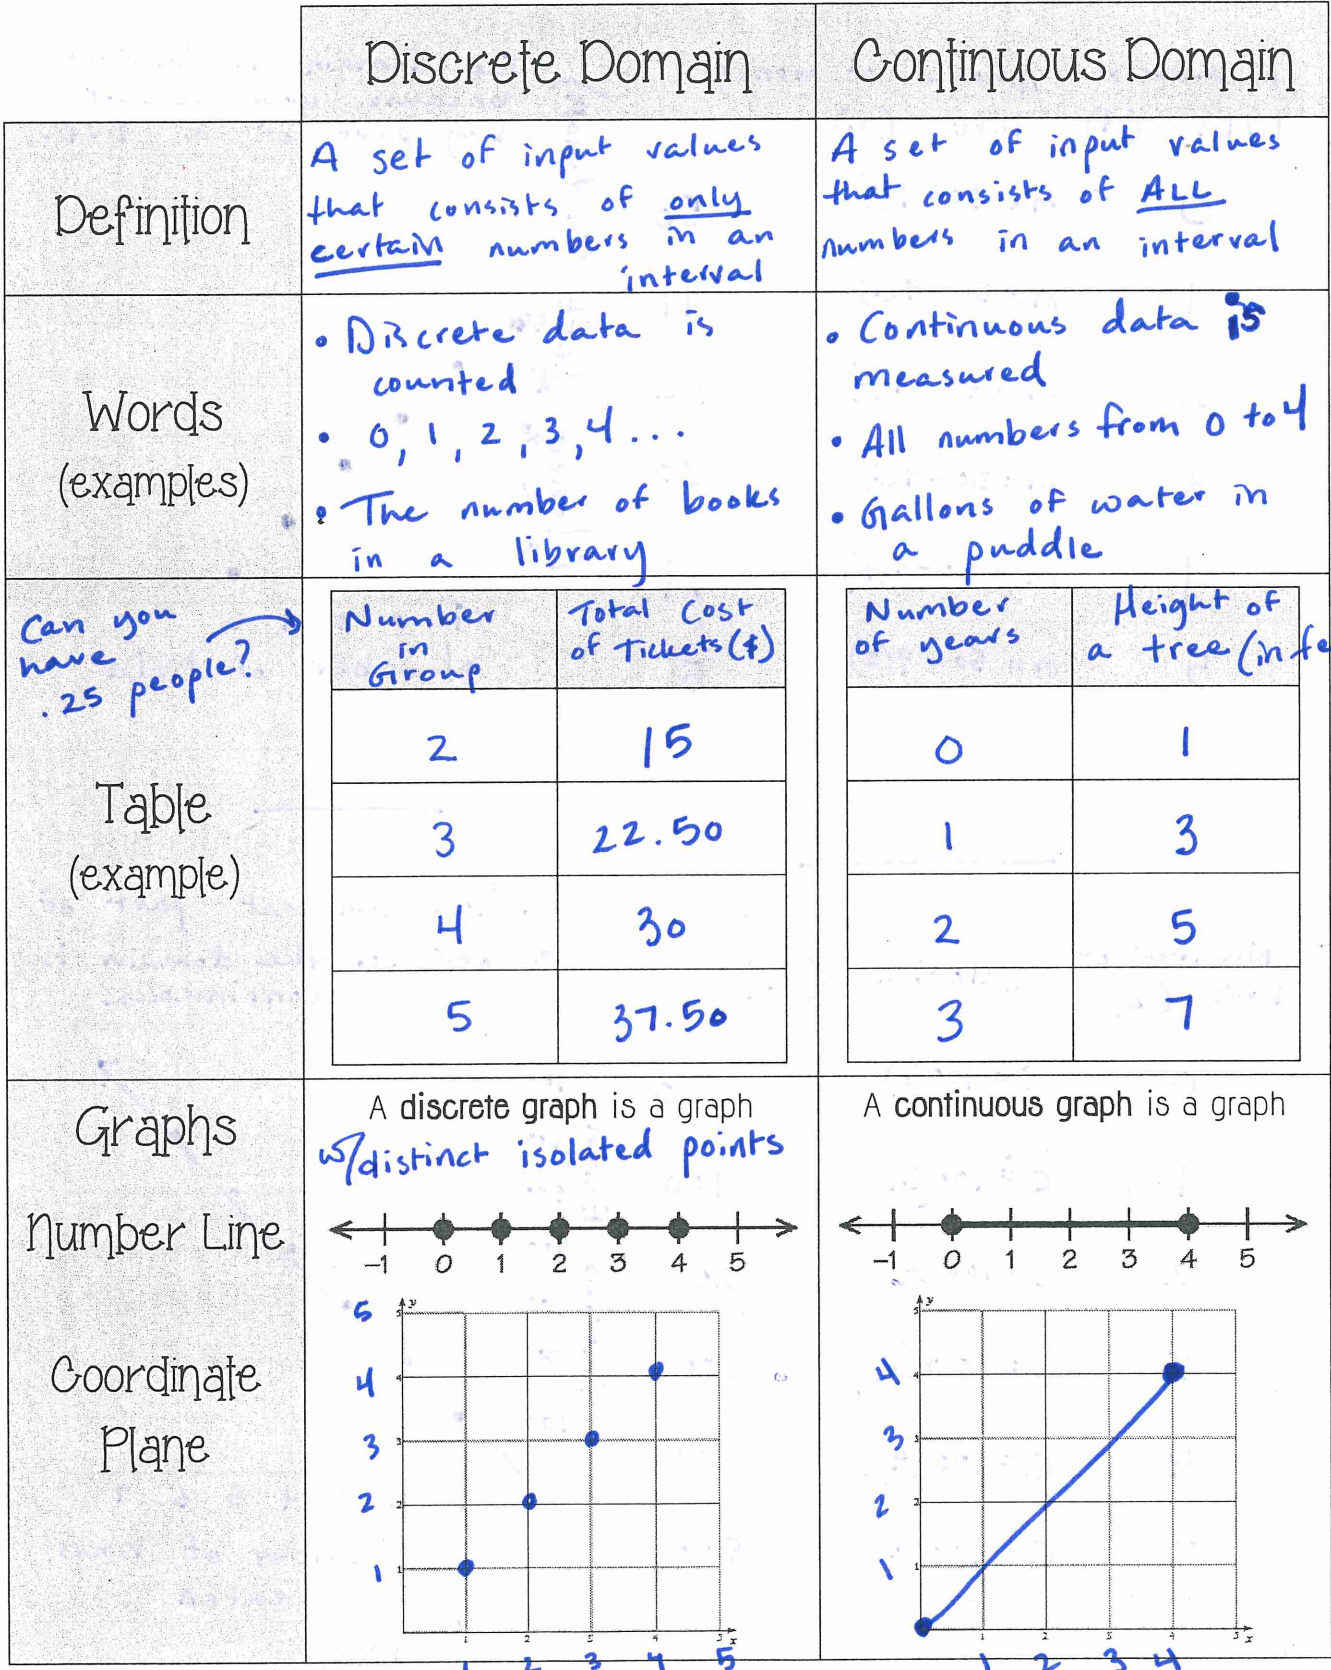 Discrete Domain
Continuous Domain
Definition
A set of input values
that consists of only
certain numbers in an
interval
A set of input values
that consists of ALL
numbers in an interval
Words
(examples)
• Discrete data is
counted
• 0, 1, 2, 3, 4...
• The number of books
in a library
• Continuous data is
measured
• All numbers from 0 to 4
• Gallons of water in
a puddle
Can you
have
.25 people?
Table
(example)
Number
in
Group
Total Cost
of Tickets ($)
2 15
3 22.50
4 30
5 37.50
Number
of years
Height of
a tree (in fe
0 1
1 3
2 5
3 7
Graphs
Number Line
Coordinate
Plane
A discrete graph is a graph
w/distinct isolated points
-1 0 1 2 3 4 5
5 5 y
4 4
3 3
2 2
1 1
1 2 3 4 5 x
1 2 3 4 5
A continuous graph is a graph
-1 0 1 2 3 4 5
5 y
4 4
3 3
2 2
1 1
1 2 3 4 5 x
1 2 3 4